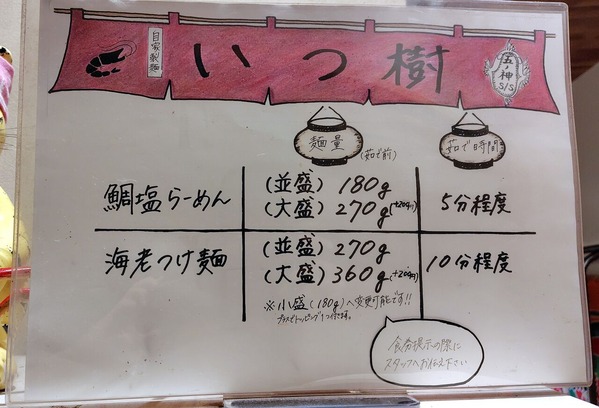 自家製麺
いつ樹
五ノ神
S/S
麺量
(茹で前)
茹で時間
鯛塩らーめん
(並盛) 180g
(大盛) 270g(+200円)
5分程度
海老つけ麺
(並盛) 270g
(大盛) 360g(+200円)
10分程度
※小盛(180g)へ変更可能です!!
プラスでトッピング1つ付きます。
食券提示の際に
スタッフへお伝え下さい